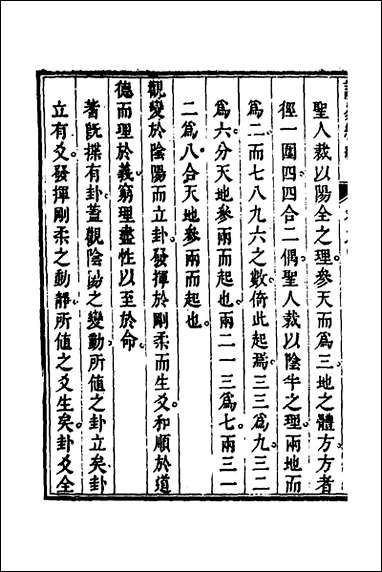 聖人裁以陽全之理參天而爲三地之體方方者
徑一圍四四合二偶聖人裁以陰半之理兩地而
爲二而七八九六之數倚此起焉三三爲九三二
爲六分天地參兩而起也兩二一三爲七兩三一
二爲八合天地參兩而起也
觀變於陰陽而立卦發揮於剛柔而生爻和順於道
德而理於義窮理盡性以至於命
蓍旣揲有卦蓋觀陰陽之變動所値之卦立矣卦
立有爻發揮剛柔之動靜所値之爻生矣卦爻全